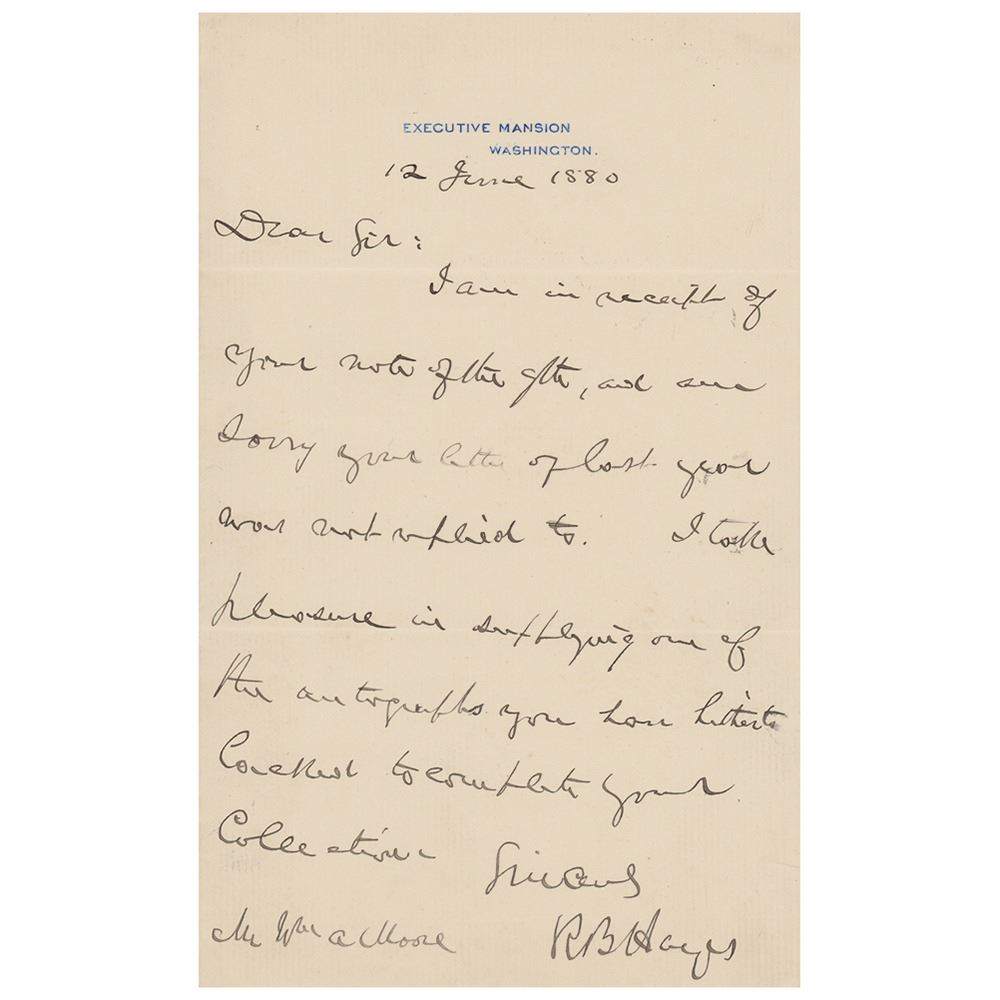 EXECUTIVE MANSION
WASHINGTON.
12 June 1880
Dear Sir:
I am in receipt of
your note of the 9th, and am
sorry your letter of last year
was not replied to. I take
pleasure in supplying one of
the autographs you have hitherto
lacked to complete your
Collection.
Sincerely
R B Hayes
Mr Wm A Moore